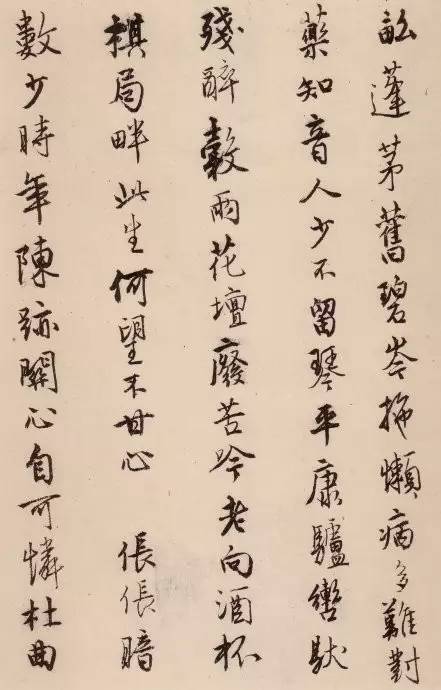 畝蓬茅舊碧岑懶病多難對
藥知音人少不留琴平康驢轡馱
殘醉穀雨花壇廢苦吟老向酒杯
棋局畔此生何望不甘心 倀倀暗
數少時年陳跡關心自可憐杜曲